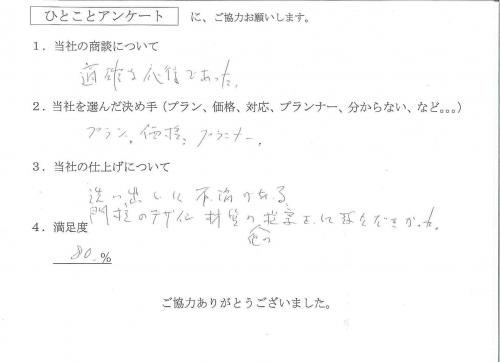 ひとことアンケート に、ご協力お願いします。
1．当社の商談について
適確な応待であった。
2．当社を選んだ決め手（プラン、価格、対応、プランナー、分からない、など。。。）
プラン。価格、プランナー。
3．当社の仕上げについて
洗い出しに不満がある。
門柱のデザイン 材質の提案を
他の
4．満足度
80.%
ご協力ありがとうございました。